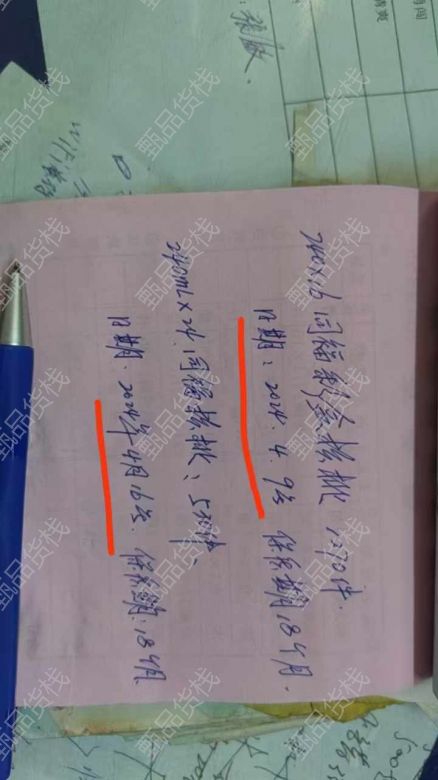 240×16 同福彩盒核桃 1370件.
日期: 2024.4.9号 保质期18个月.
240mL×24 同福核桃: 520件、
日期. 2024年4月16号. 保质期: 18个月.
甄品货栈